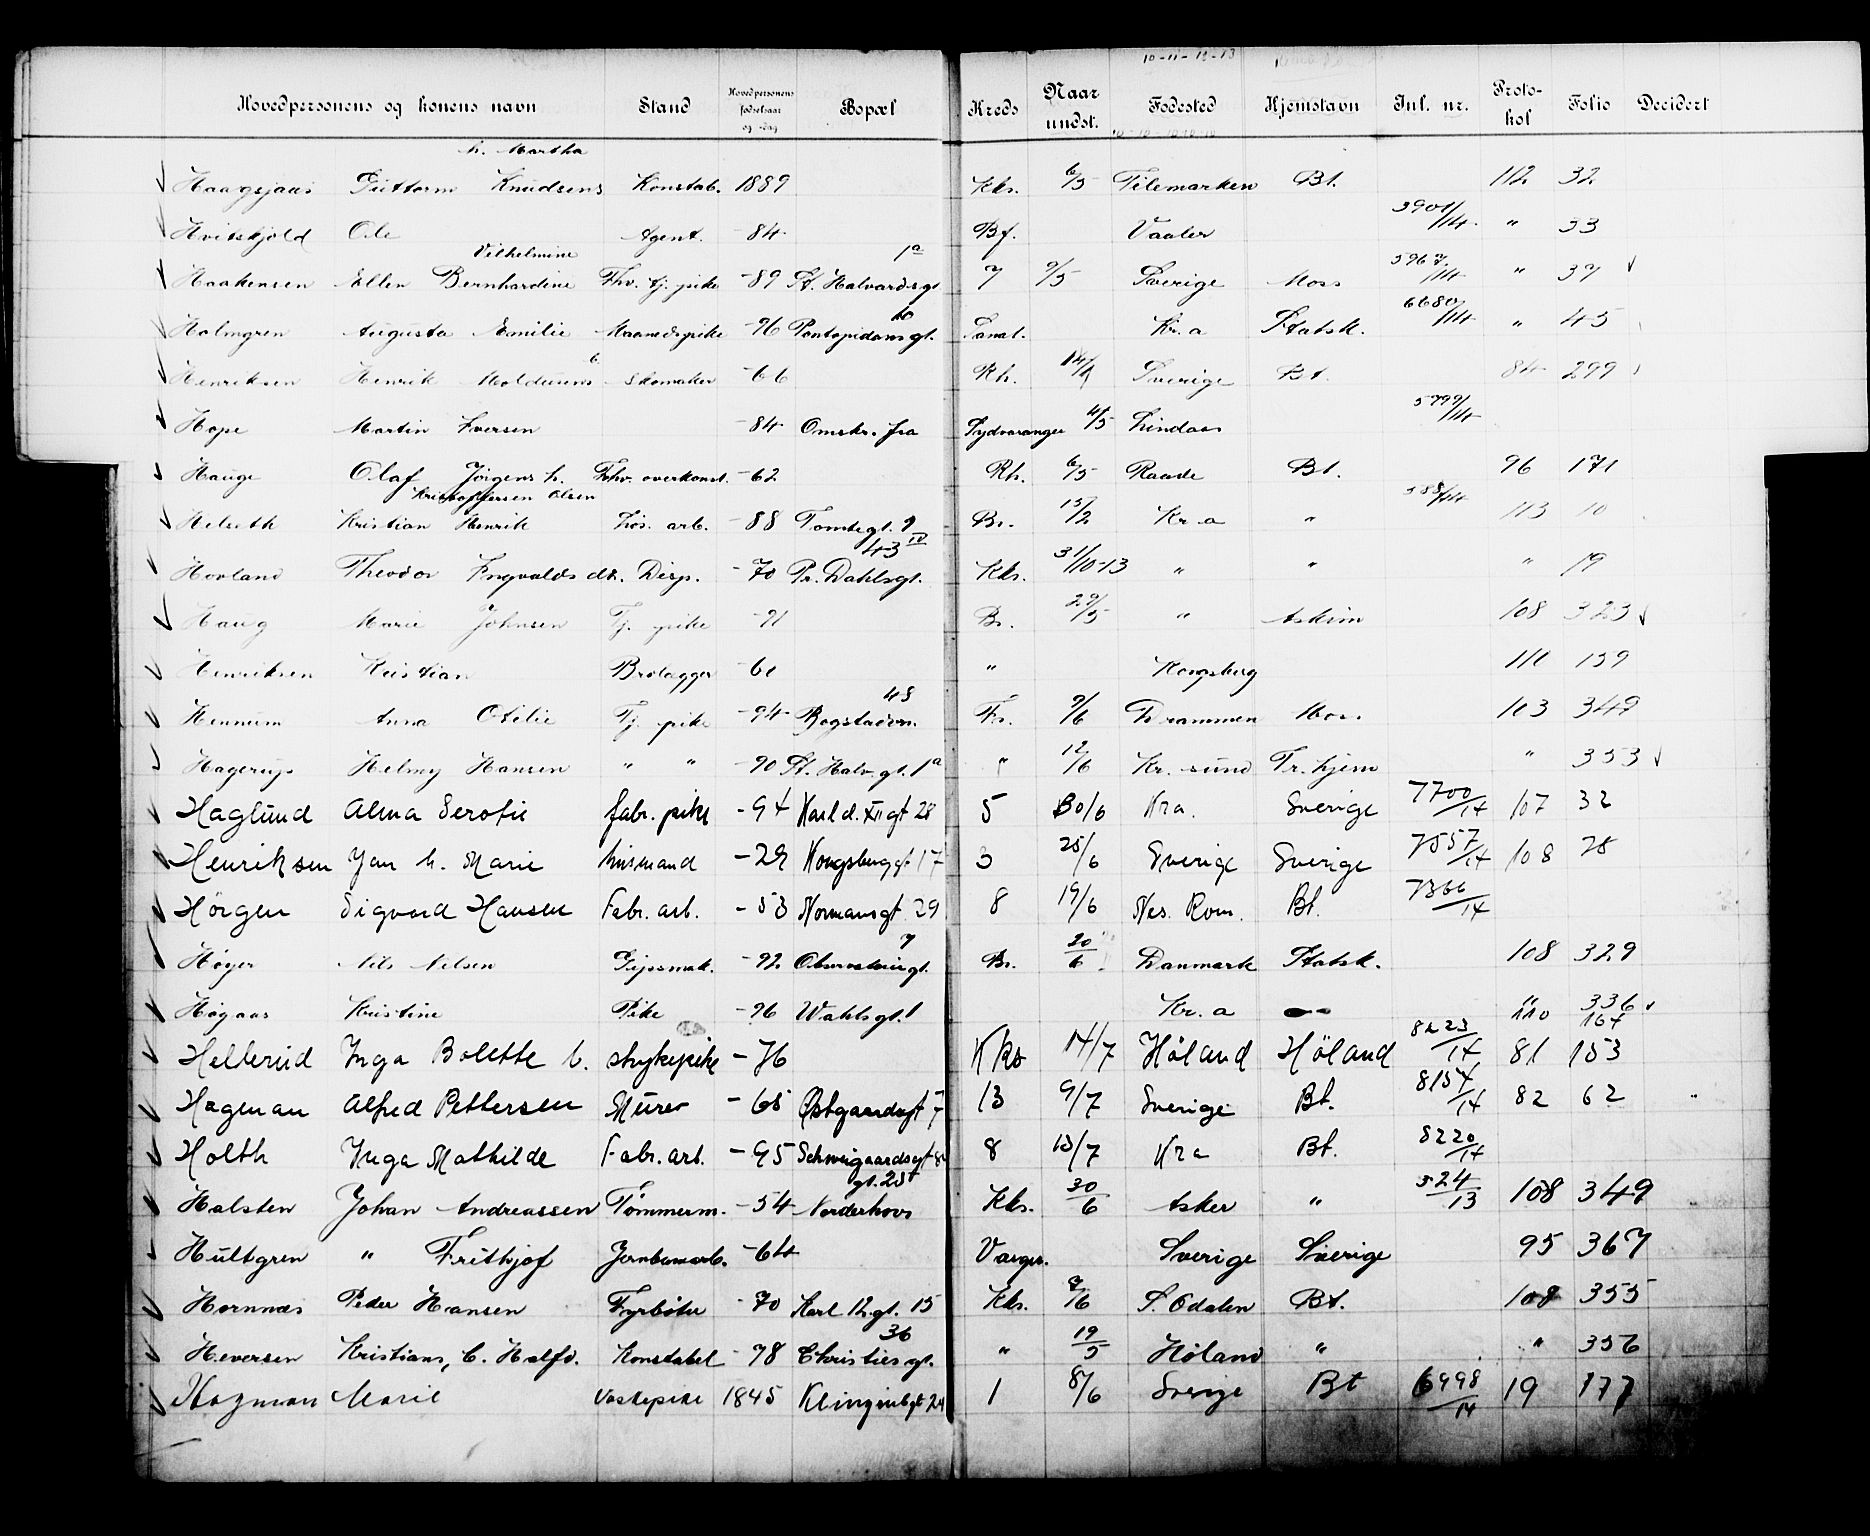 10-11-12-13
Hovedpersonens og konens navn Stand Hovedpersonens fødselsaar og -dag Bopæl Kreds Naar undst. Fødested Hjemstavn Inl. nr. Proto-kol Folio Decidert
h. Martha
Haagsjaas Guttorm Knudsens Konstab. 1889 Kks. 6/5 Tilemarken Bt. 112 32
Hvitskjold Ole Agent. -84 Bf. Vaaler 3901/14 " 33
Vilhelmine 1a
Haakensen Ellen Bernhardine Fhv. tj. pike -89 St. Halvardsgt 7 9/5 Sverige Moss 5967/14 " 37
10
Holmgren Augusta Emilie Maanedspike -96 Pontopidansgt. Sanat. Kr.a Statsk. 6680/14 " 45
Henriksen Henrik -66 Skomaker Rh. 14/9 Sverige Bt. 84 299
Hope Martin Iversen -84 Omskr. fra Sydvaranger 4/5 Lindaas 5799/14
Hauge Olaf Jørgens h. Fhv. overkonst. -62 Rh. 6/5 Raade Bt. 96 171
Kristoffersen Olsen
Helseth Kristian Henrik Løs. arb. -88 Tomtegt. 9 Br. 13/2 Kr.a " 588/14 113 10
43 IV
Hovland Theodor Ingvalds dtr. Disp. -70 Pr. Dahlsgt. Kks. 31/10-13 " " " 19
Haug Marie Johnsen Tj. pike -91 Br. 29/5 " Askim 108 323
Henriksen Kristian Brolægger -61 " Kongsberg 111 139
48
Hennum Anna Otilie Tj. pike -94 Bogstadvn. Fr. 9/6 Drammen Mos. 103 349
Hagerup Helmy Hansen " " -90 St. Halv.gt. 1a " 12/6 Kr.sund Tr.hjem " 353
Haglund Alma Serofie fabr. pike -94 Karl d. XII gt 28 5 30/6 Kra. Sverige 7700/14 107 32
Henriksen Jan h. Marie husmand -29 Kongsberggt 17 3 25/6 Sverige Sverige 7557/14 108 28
Hörgen Sigvard Hansen Fabr. arb. -53 Normansgt. 29 8 19/6 Nes. Rom. Bt. 7366/14
7
Høyer Nils Nilsen Gipsmak. -92 Observatoriegt. Br. 20/6 Danmark Statsk. 108 329
Høgaas Kristine Pike -96 Wahlsgt. 1 Kr.a " 336
110 164
Hellerud Inga Bolette b. strykepike -76 Kks 14/7 Höland Höland 8223/14 81 153
Hagman Alfred Pettersen Murer -65 Østgaardsgt 7 13 9/7 Sverige Bt. 8154/14 82 62
Holth Inga Mathilde Fabr. arb. -95 Schweigaardsgt 8 13/7 Kra Bt. 8220/14
gt. 25
Halsten Johan Andreassen Tømmerm. -54 Norderhovs Kks. 30/6 Asker " 524/13 108 349
Hultgren " Frithjof Jernbanearb. -64 Varger. Sverige Sverige 95 367
Hornnæs Peder Hansen Fyrbøter -70 Karl 12. gt. 15 Kks. 9/6 S. Odalen Bt. 108 355
36
Heversen Kristians, C. Halfd. Konstabel -78 Christies gt. " 19/5 Höland " " 356
Hagman Marie Vaskepike 1845 Klingenbgt 24 1 8/6 Sverige Bt 6998/14 19 177